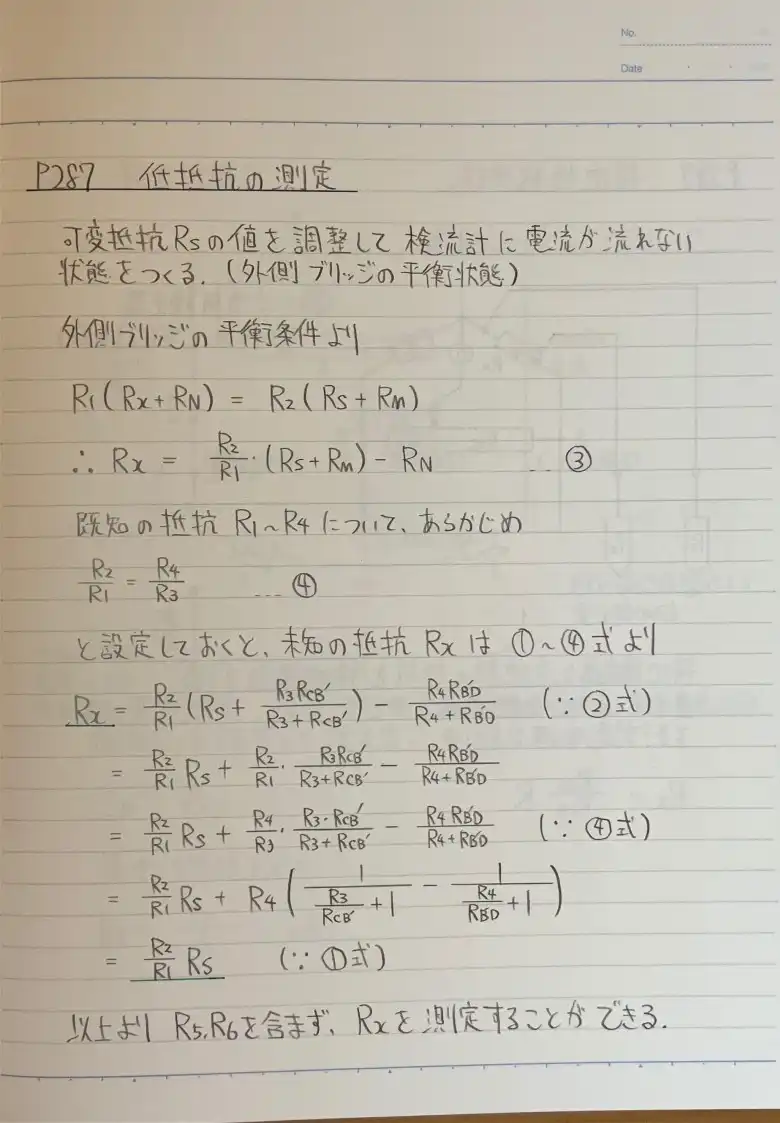 No.
Date
P287 低抵抗の測定
可変抵抗Rsの値を調整して検流計に電流が流れない
状態をつくる.(外側ブリッジの平衡状態)
外側ブリッジの平衡条件より
R1(Rx+RN) = R2(Rs+Rm)
∴ Rx = R2/R1・(Rs+Rm) - RN …③
既知の抵抗 R1~R4について、あらかじめ
R2/R1 = R4/R3 …④
と設定しておくと、未知の抵抗 Rx は ①~④式より
Rx = R2/R1 (Rs + R3RCB'/(R3+RCB')) - R4RB'D/(R4+RB'D) (∵②式)
= R2/R1 Rs + R2/R1・R3RCB'/(R3+RCB') - R4RB'D/(R4+RB'D)
= R2/R1 Rs + R4/R3・R3・RCB'/(R3+RCB') - R4RB'D/(R4+RB'D) (∵④式)
= R2/R1 Rs + R4(1/(R3/RCB'+1) - 1/(R4/RB'D+1))
= R2/R1 Rs (∵①式)
以上より R5,R6を含まず、Rxを測定することができる.